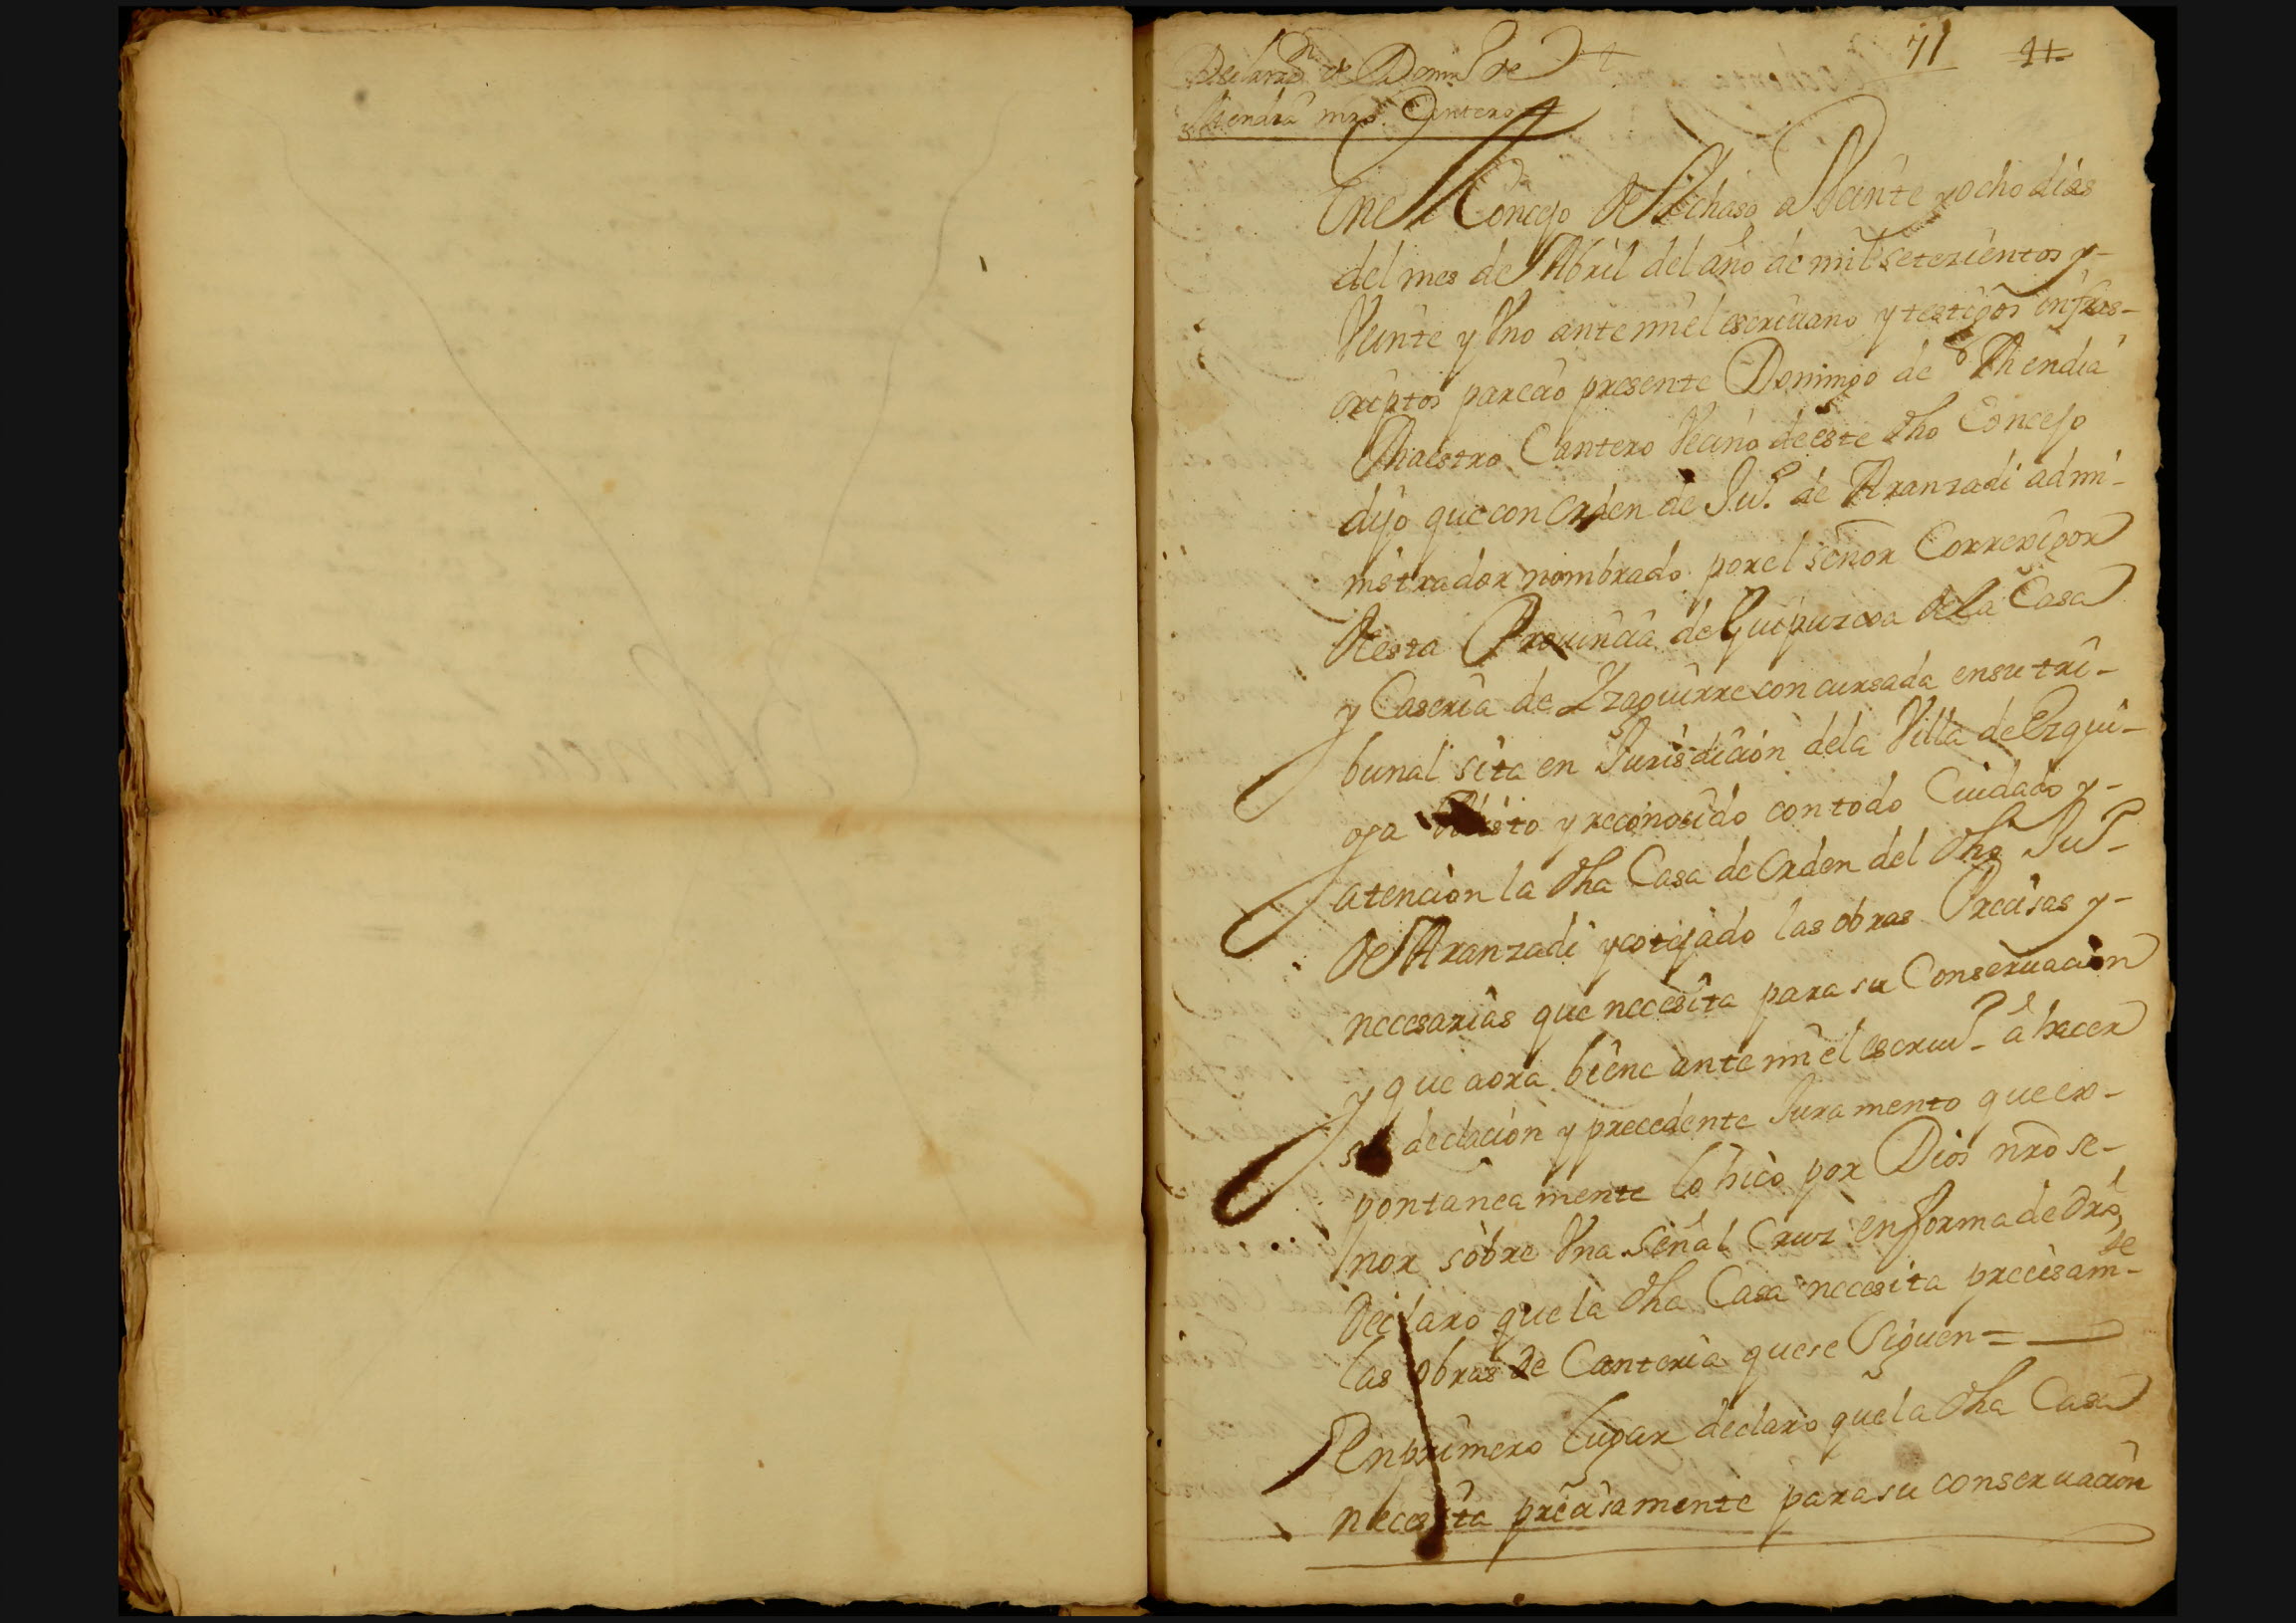 71 71
Declaraon de Domo de
Mendia mro Cantero
En el Concejo de Ichaso a Veinte y ocho dias
del mes de Abril del año de mil setezientos y
Veinte y Vno ante mi el escriuano y testigos infras-
criptos parecio presente Domingo de Mendia
Maestro Cantero Vecino de este dho Concejo
dijo que con Orden de Jua. de Aranzadi admi-
nistrador nombrado por el señor Corregidor
de esta Prouincia de Guipuzcoa de la Casa
y Caseria de Yzaguirre concursada en su tri-
bunal sita en Jurisdicion de la Villa de Ezqui-
oga Visto y reconosido con todo Cuidado y
atencion la dha Casa de Orden del dho Jua
de Aranzadi y cotejado las obras Precisas y
necesarias que necesita para su Conseruacion
y que aora biene ante mi el escriuo a hacer
su declacion y precedente Juramento que ex-
pontaneamente lo hico por Dios nro se-
ñor sobre Vna señal Cruz en forma de dro,
Declaro que la dha Casa necesita precisamte
las obras de Canteria que se Siguen =
En primero Lugar declaro que la dha Casa
necesita precisamente para su conseruacion